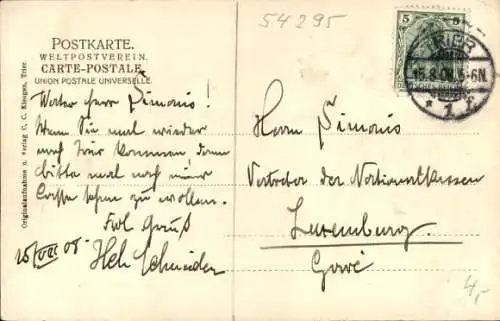 54295
POSTKARTE.
WELTPOSTVEREIN.
CARTE-POSTALE
UNION POSTALE UNIVERSELLE
Originalaufnahme u. Verlag C. C. Kloeges, Trier.
5 5
TRIER
15.8.08.5-6N.
* 1 f
Werter Herr Simonis!
Wenn Sie mal wieder
nach Trier kommen dann
bitte mal nach meiner
Casse sehen zu wollen.
Frdl Gruß
15/VIII 08 Hch Schneider
Herrn Simonis
Vertreter der Nationalkassen
Luxemburg.
Gare
4,-